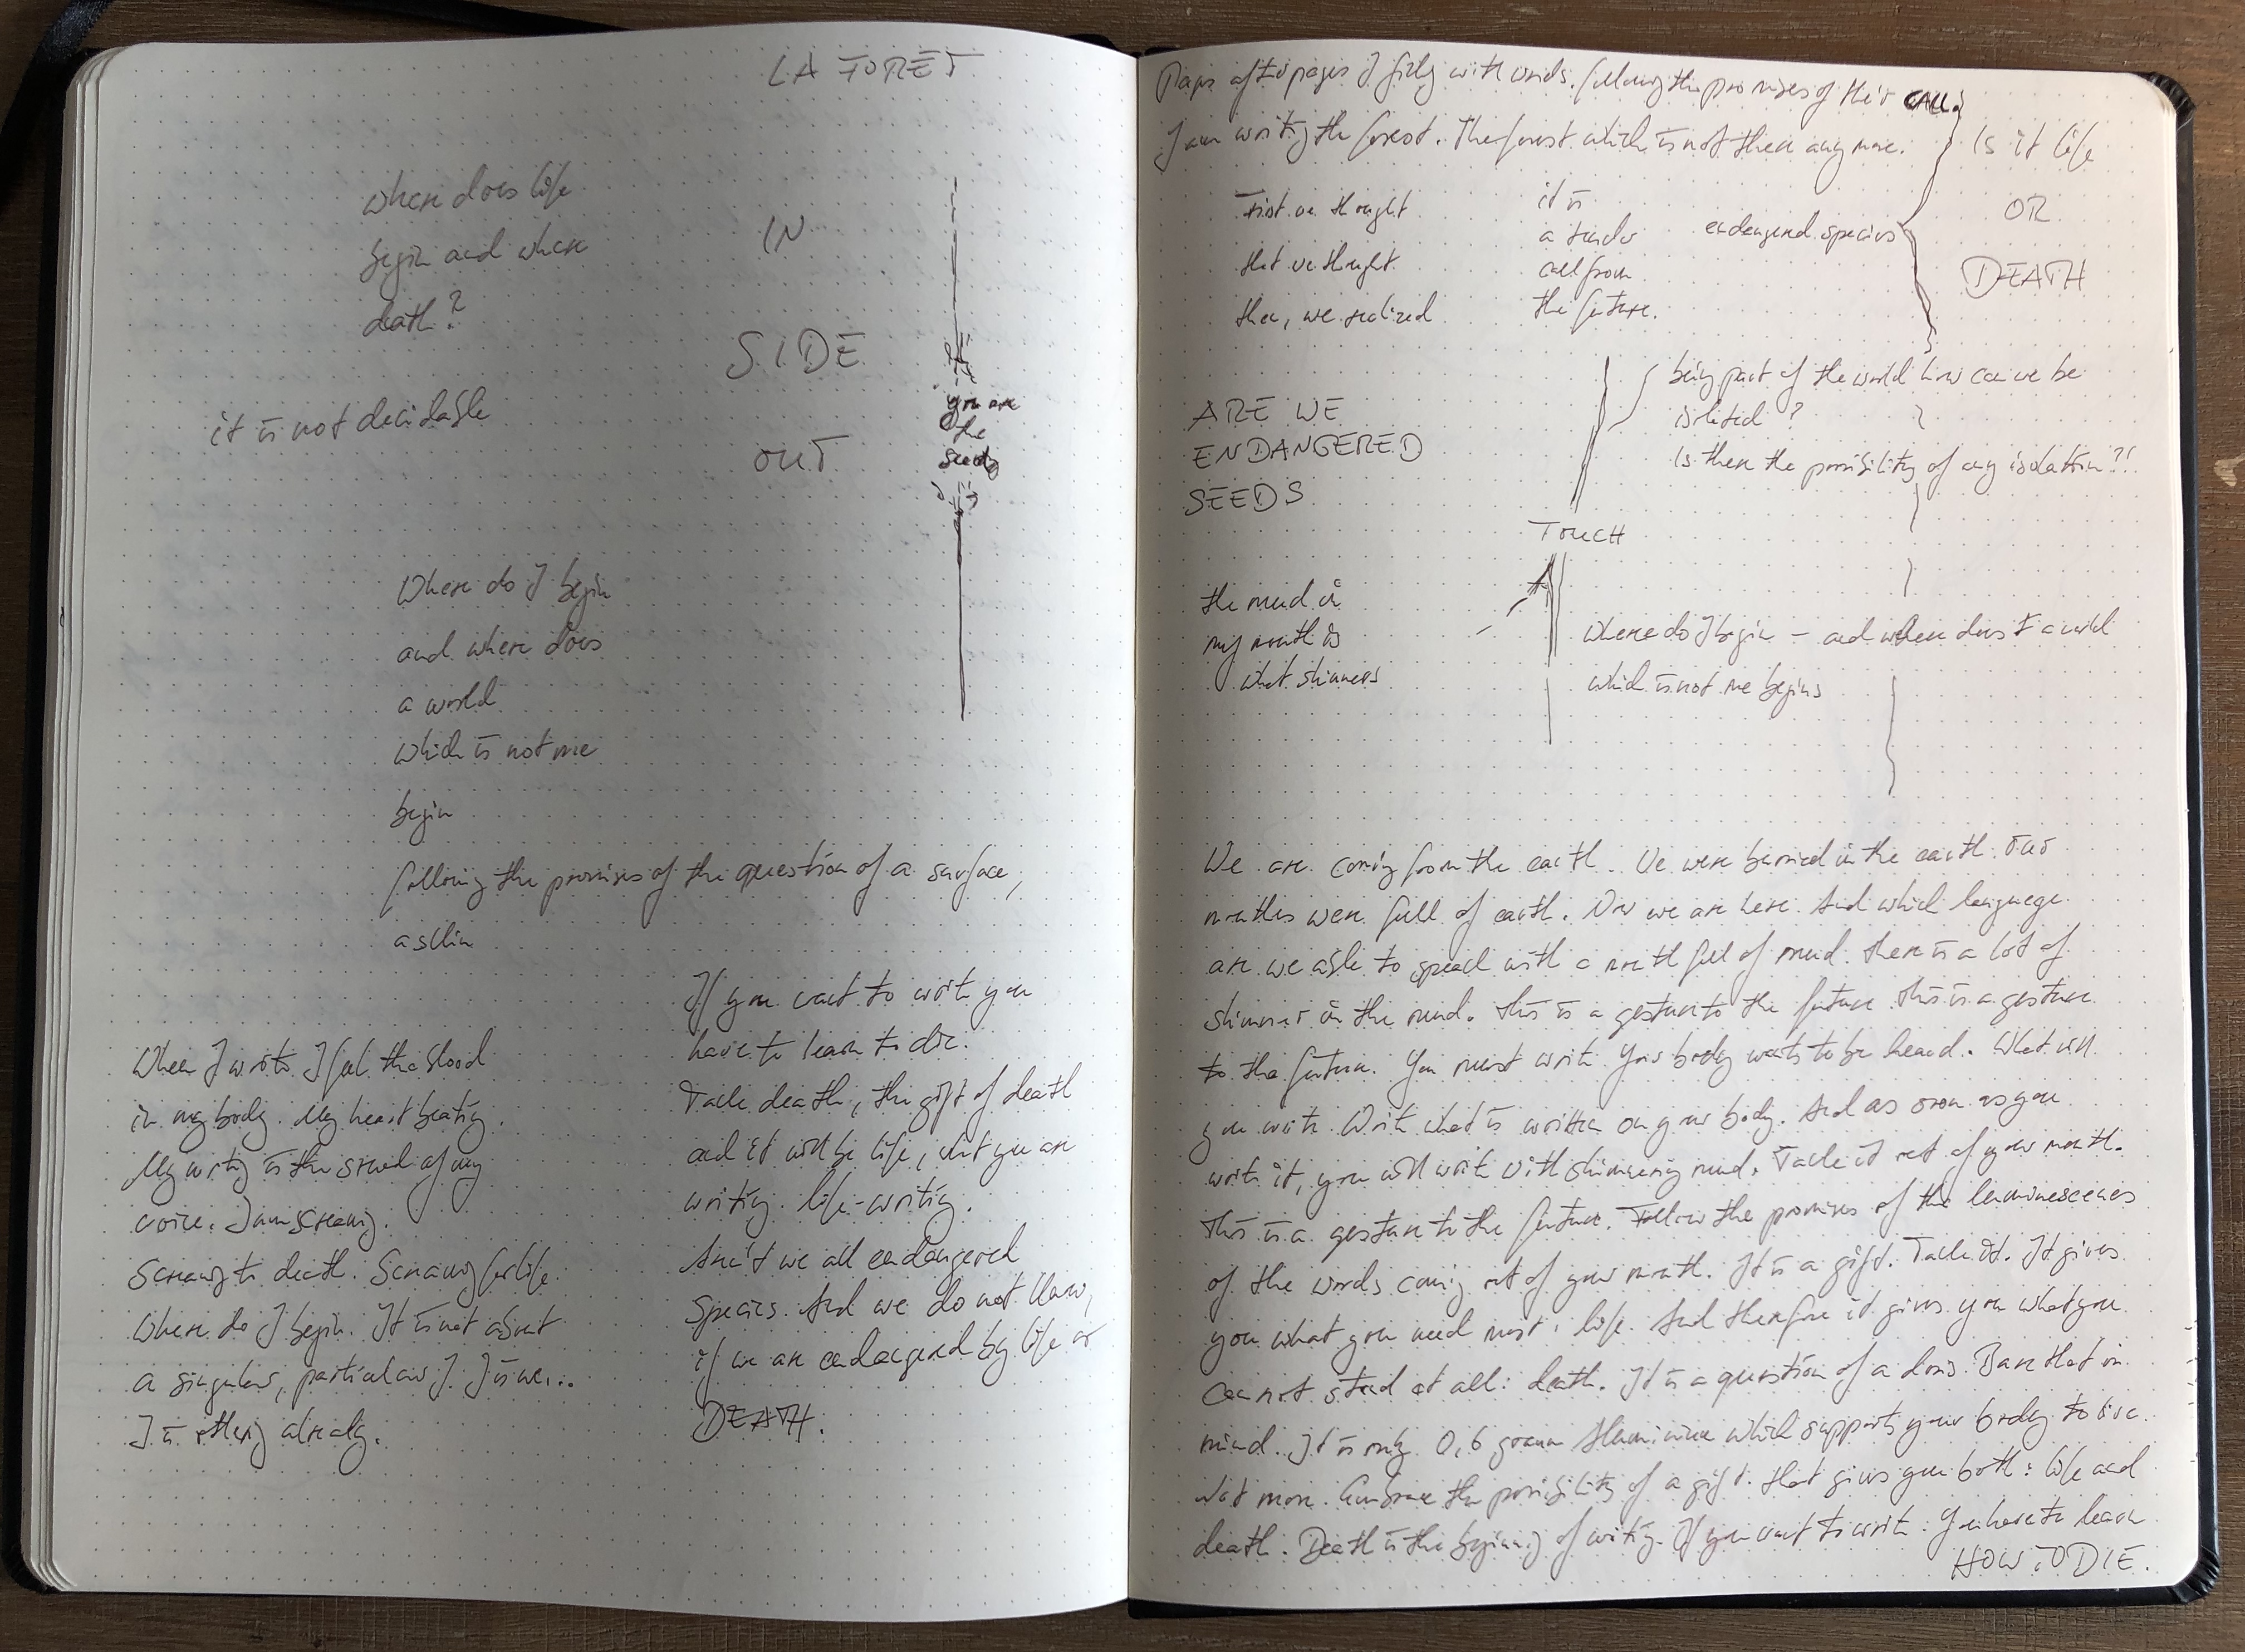 LA FORET
where does life
begin and where
death?
it is not decidable
IN
SIDE
OUT
you are
the
seeds
Where do I begin
and where does
a world
which is not me
begin
following the promises of the question of a surface,
a skin
When I write I feel the blood
in my body. My heart beating.
My writing is the sound of my
voice. I am screaming.
Screaming to death. Screaming for life.
Where do I begin. It is not about
a singular, particular I. I is we...
I is othering already.
If you want to write you
have to learn to die.
Take death, the gift of death
and it will be life, what you are
writing. life-writing.
Aren't we all endangered
species. And we do not know,
if we are endangered by life or
DEATH.
Pages after pages I fill with words. following the promises of their CALL.
I am writing the forest. The forest which is not there any more.
First we thought
that we thought
then, we realized
it is
a tender
call from
the future.
endangered species
Is it life
OR
DEATH
ARE WE
ENDANGERED
SEEDS
being part of the world how can we be
isolated?
Is there the possibility of any isolation?!
TOUCH
the mud in
my mouth is
what shimmers
Where do I begin – and where does a world
which is not me begins
We are coming from the earth. We were burried in the earth. Our
mouthes were full of earth. Now we are here. And which language
are we able to speak with a mouth full of mud. there is a lot of
shimmer in the mud. this is a gesture to the future this is a gesture
to the future. You must write. Your body wants to be heard. What will
you write. Write what is written on your body. And as soon as you
write it, you will write with shimmering mud. Take it out of your mouth.
this is a gesture to the future. Follow the promises of the luminescences
of the words coming out of your mouth. It is a gift. Take it. It gives
you what you need most: life. And therefore it gives you what you
can not stand at all: death. It is a question of a dosis. Bare that in
mind. It is only 0,6 gramm Aluminium which supports your body to live.
Not more. Embrace the possibility of a gift that gives you both: life and
death. Death is the beginning of writing. If you want to write: You have to learn
HOW TO DIE.